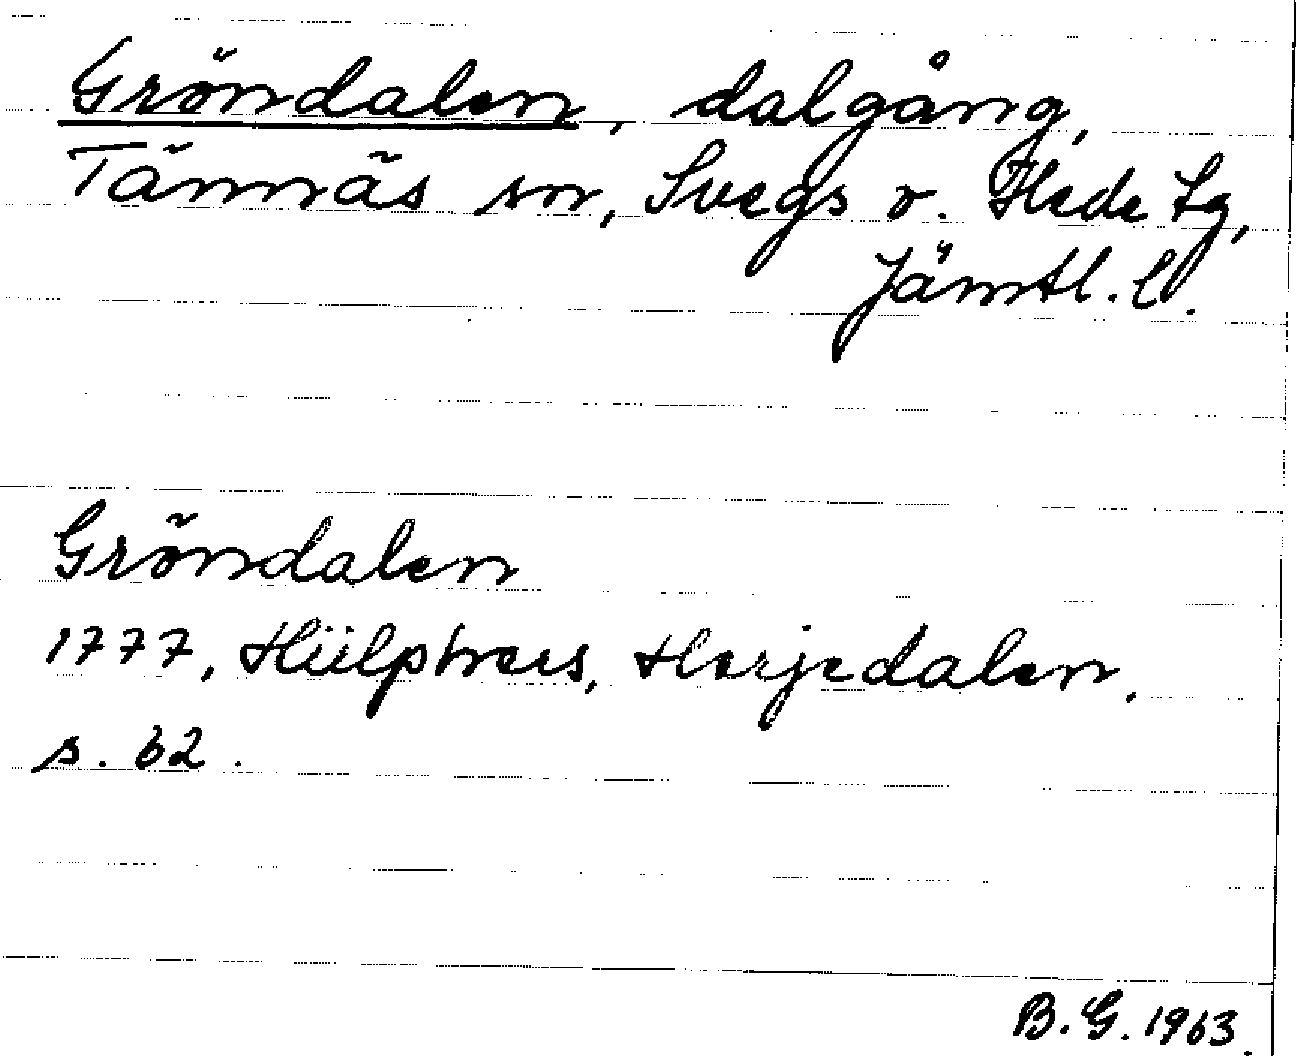 Gröndalen, dalgång,
Tännäs sn, Svegs o. Hede tg,
Jämtl. l.
Gröndalen
1777, Hülphers, Herjedalen,
s. 62.
B.G. 1963.